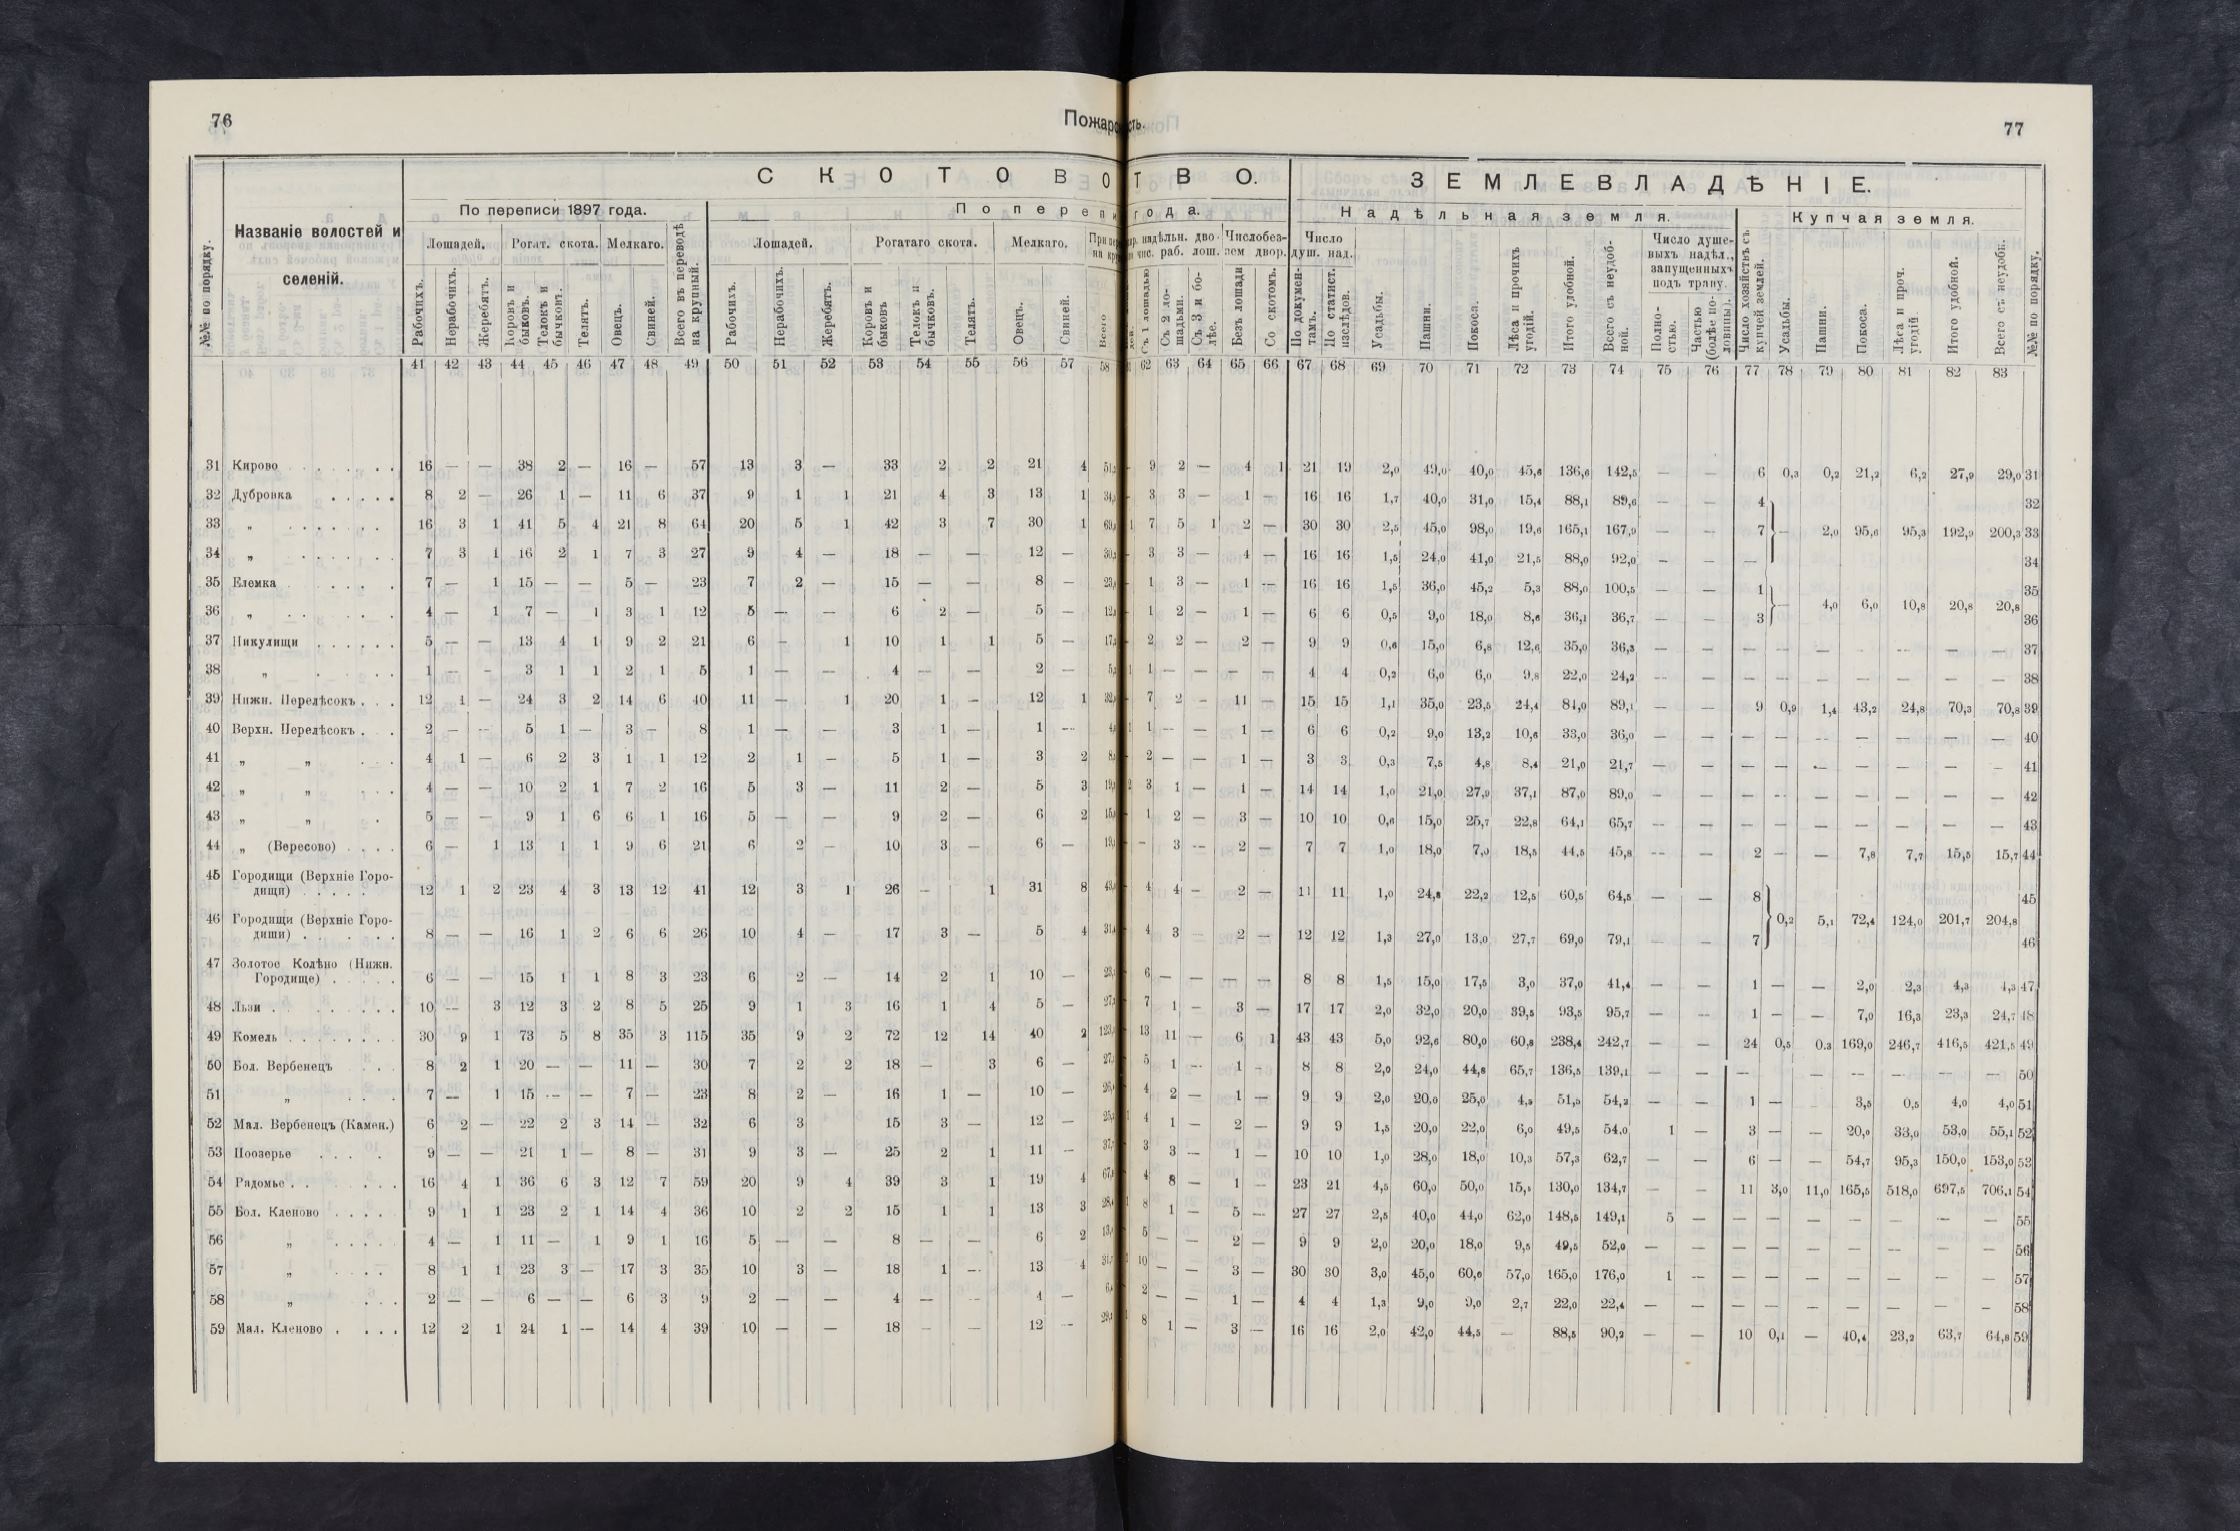 76
77
С К О Т О В О Т В О.
З Е М Л Е В Л А Д Ѣ Н І Е.
По переписи 1897 года.
года.
Надѣльная земля.
Купчая земля.
№№ по порядку.
Названіе волостей и
селеній.
Лошадей. Рогат. скота. Мелкаго.
Всего въ переводѣ на крупный.
Лошадей. Рогатаго скота. Мелкаго.
Рабочихъ. Нерабочихъ. Жеребятъ. Коровъ и быковъ. Телокъ и бычковъ. Телятъ. Овецъ. Свиней.
Рабочихъ. Нерабочихъ. Жеребятъ. Коровъ и быковъ Телокъ и бычковъ. Телятъ. Овецъ. Свиней. Всего
надѣльн. дво- Число без-
раб. лош. зем двор.
Съ 1 лошадью Съ 2 ло- шадьми. Съ 3 и бо- лѣе. Безъ лошади Со скотомъ.
Число
душ. над.
По докумен- тамъ. По статист. изслѣдов.
Усадьбы. Пашни. Покоса. Лѣса и прочихъ угодій. Итого удобной. Всего съ неудоб- ной.
Число душе-
выхъ надѣл.,
запущенныхъ
подъ траву.
Полно- стью. Частью (болѣе по- ловины).
Число хозяйствъ съ купчей землей. Усадьбы. Пашни. Покоса. Лѣса и проч. угодій Итого удобной. Всего съ неудобн. №№ по порядку.
41 42 43 44 45 46 47 48 49 50 51 52 53 54 55 56 57 58 62 63 64 65 66 67 68 69 70 71 72 73 74 75 76 77 78 79 80 81 82 83
31 Кирово 16 — — 38 2 — 16 — 57 13 3 — 33 2 2 21 4 9 2 — 4 1 21 19 2,0 49,0 40,0 45,6 136,6 142,5 — — 6 0,3 0,2 21,2 6,2 27,9 29,0 31
32 Дубровка 8 2 — 26 1 — 11 6 37 9 1 1 21 4 3 13 1 3 3 — 1 — 16 16 1,7 40,0 31,0 15,4 88,1 89,6 — — 4 32
33 „ 16 3 1 41 5 4 21 8 64 20 5 1 42 3 7 30 1 7 5 1 2 — 30 30 2,5 45,0 98,0 19,6 165,1 167,9 — — 7 — 2,0 95,6 95,3 192,9 200,3 33
34 „ 7 3 1 16 2 1 7 3 27 9 4 — 18 — — 12 — 3 3 — 4 — 16 16 1,5 24,0 41,0 21,5 88,0 92,0 — — — 34
35 Елемка 7 — 1 15 — — 5 — 23 7 2 — 15 — — 8 — 1 3 — 1 — 16 16 1,5 36,0 45,2 5,3 88,0 100,5 — — 1 35
— 4,0 6,0 10,8 20,8 20,8
36 „ 4 — 1 7 — 1 3 1 12 5 — — 6 2 — 5 — 1 2 — 1 — 6 6 0,5 9,0 18,0 8,6 36,1 36,7 — — 3 36
37 Никулищи 5 — — 13 4 1 9 2 21 6 — 1 10 1 1 5 — 2 2 — 2 — 9 9 0,6 15,0 6,8 12,6 35,0 36,3 — — — — — — — — — 37
38 „ 1 — — 3 1 1 2 1 5 1 — — 4 — — 2 — 1 — — — — 4 4 0,2 6,0 6,0 9,8 22,0 24,2 — — — — — — — — — 38
39 Нижн. Перелѣсокъ 12 1 — 24 3 2 14 6 40 11 — 1 20 1 — 12 1 7 2 — 11 — 15 15 1,1 35,0 23,5 24,4 84,0 89,1 — — 9 0,9 1,4 43,2 24,8 70,3 70,8 39
40 Верхн. Перелѣсокъ 2 — — 5 1 — 3 — 8 1 — — 3 1 — 1 — 1 — — 1 — 6 6 0,2 9,0 13,2 10,6 33,0 36,0 — — — — — — — — — 40
41 „ „ 4 1 — 6 2 3 1 1 12 2 1 — 5 1 — 3 2 2 — — 1 — 3 3 0,3 7,5 4,8 8,4 21,0 21,7 — — — — — — — — — 41
42 „ „ 4 — — 10 2 1 7 2 16 5 3 — 11 2 — 5 3 3 1 — 1 — 14 14 1,0 21,0 27,9 37,1 87,0 89,0 — — — — — — — — — 42
43 „ „ 5 — — 9 1 6 6 1 16 5 — — 9 2 — 6 2 1 2 — 3 — 10 10 0,6 15,0 25,7 22,8 64,1 65,7 — — — — — — — — — 43
44 „ (Вересово) 6 — 1 13 1 1 9 6 21 6 2 — 10 3 — 6 — — 3 — 2 — 7 7 1,0 18,0 7,0 18,5 44,5 45,8 — — 2 — — 7,8 7,7 15,5 15,7 44
45 Городищи (Верхніе Горо-
дищи) 12 1 2 23 4 3 13 12 41 12 3 1 26 — 1 31 8 4 4 — 2 — 11 11 1,0 24,8 22,2 12,5 60,5 64,5 — — 8 45
0,2 5,1 72,4 124,0 201,7 204,8
46 Городищи (Верхніе Горо-
дищи) 8 — — 16 1 2 6 6 26 10 4 — 17 3 — 5 4 4 3 — 2 — 12 12 1,3 27,0 13,0 27,7 69,0 79,1 — — 7 46
47 Золотое Колѣно (Нижн.
Городище) 6 — — 15 1 1 8 3 23 6 2 — 14 2 1 10 — 6 — — — — 8 8 1,5 15,0 17,5 3,0 37,0 41,4 — — 1 — — 2,0 2,3 4,3 4,3 47
48 Льзи 10 — 3 12 3 2 8 5 25 9 1 3 16 1 4 5 — 7 1 — 3 — 17 17 2,0 32,0 20,0 39,5 93,5 95,7 — — 1 — — 7,0 16,3 23,3 24,7 48
49 Комель 30 9 1 73 5 8 35 3 115 35 9 2 72 12 14 40 2 13 11 — 6 1 43 43 5,0 92,6 80,0 60,8 238,4 242,7 — — 24 0,5 0,3 169,0 246,7 416,5 421,5 49
50 Бол. Вербенецъ 8 2 1 20 — — 11 — 30 7 2 2 18 — 3 6 — 5 1 — 1 — 8 8 2,0 24,0 44,8 65,7 136,5 139,1 — — — — — — — — 50
51 „ 7 — 1 15 — — 7 — 23 8 2 — 16 1 — 10 — 4 2 — 1 — 9 9 2,0 20,0 25,0 4,5 51,5 54,2 — — 1 — 3,5 0,5 4,0 4,0 51
52 Мал. Вербенецъ (Камен.) 6 2 — 22 2 3 14 — 32 6 3 15 3 — 12 — 4 1 — 2 — 9 9 1,5 20,0 22,0 6,0 49,5 54,0 1 — 3 — — 20,0 33,0 53,0 55,1 52
53 Поозерье 9 — — 21 1 — 8 — 31 9 3 — 25 2 1 11 — 3 3 — 1 — 10 10 1,0 28,0 18,0 10,3 57,3 62,7 — — 6 — — 54,7 95,3 150,0 153,0 53
54 Радомье 16 4 1 36 6 3 12 7 59 20 9 4 39 3 1 19 4 4 8 — 1 — 23 21 4,5 60,0 50,0 15,5 130,0 134,7 — — 11 3,0 11,0 165,5 518,0 697,5 706,1 54
55 Бол. Кленово 9 1 1 23 2 1 14 4 36 10 2 2 15 1 1 13 3 8 1 — 5 — 27 27 2,5 40,0 44,0 62,0 148,5 149,1 5 — — — — — — — — 55
56 „ 4 — 1 11 — 1 9 1 16 5 — — 8 — — 6 2 5 — — 2 — 9 9 2,0 20,0 18,0 9,5 49,5 52,0 — — — — — — — — — 56
57 „ 8 1 1 23 3 — 17 3 35 10 3 — 18 1 — 13 4 10 — — 3 — 30 30 3,0 45,0 60,0 57,0 165,0 176,0 1 — — — — — — — — 57
58 „ 2 — — 6 — — 6 3 9 2 — — 4 — — 4 — 2 — — 1 — 4 4 1,3 9,0 9,0 2,7 22,0 22,4 — — — — — — — — — 58
59 Мал. Кленово 12 2 1 24 1 — 14 4 39 10 — — 18 — — 12 — 8 1 — 3 — 16 16 2,0 42,0 44,5 — 88,5 90,2 — — 10 0,1 — 40,4 23,2 63,7 64,8 59